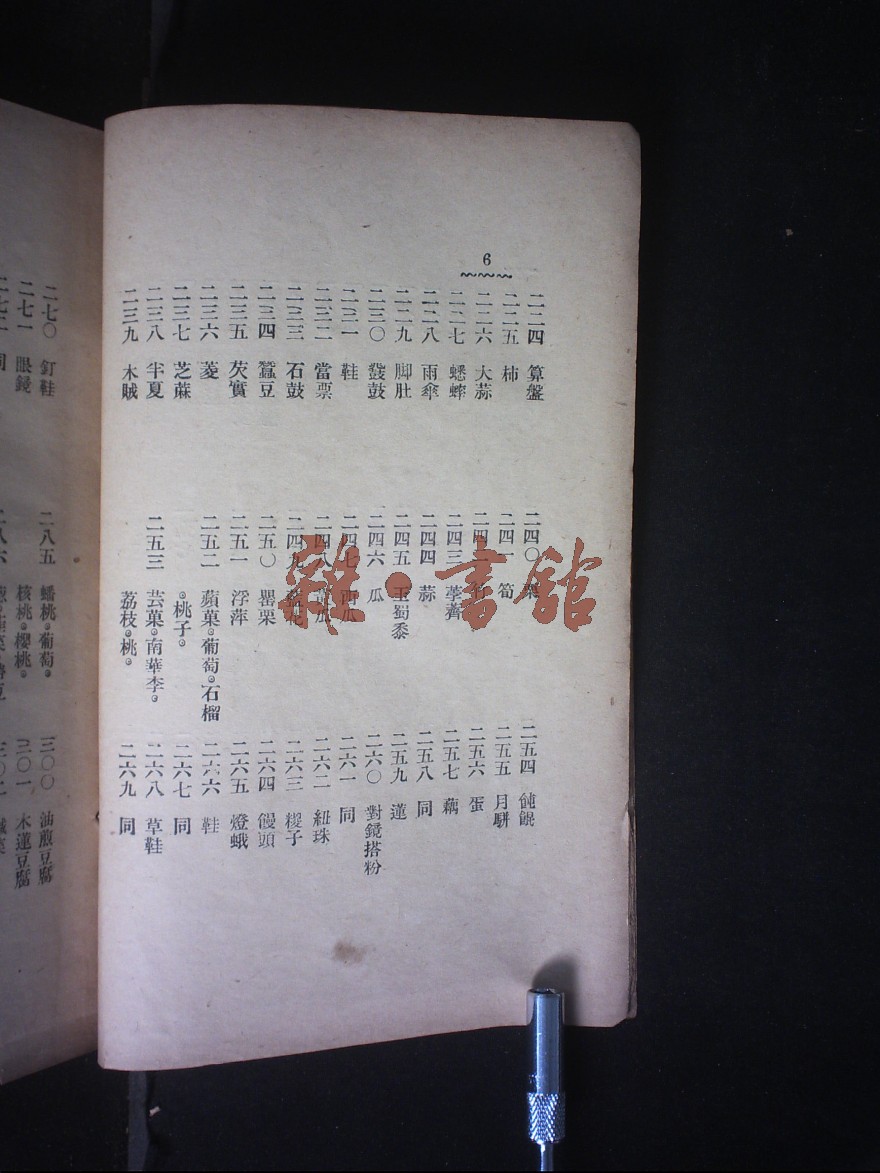 6
二二四 算盤
二二五 柿
二二六 大蒜
二二七 蟋蟀
二二八 雨傘
二二九 脚肚
二三〇 發鼓
二三一 鞋
二三二 當票
二三三 石鼓
二三四 蠶豆
二三五 芡實
二三六 菱
二三七 芝蔴
二三八 半夏
二三九 木賊
二四〇
二四一 筍
二四二 竹
二四三 荸薺
二四四 蒜
二四五 玉蜀黍
二四六 瓜
二四七
二四八
二四九
二五〇 罌栗
二五一 浮萍
二五二 蘋菓。葡萄。石榴
。桃子。
二五三 芸菓。南華李。
荔枝。桃。
二五四 飩餛
二五五 月餅
二五六 蛋
二五七 藕
二五八 同
二五九 蓮
二六〇 對鏡搭粉
二六一 同
二六二 紐珠
二六三 糉子
二六四 饅頭
二六五 燈蛾
二六六 鞋
二六七 同
二六八 草鞋
二六九 同
雜·書館
二七〇 釘鞋
二七一 眼鏡
二七二 同
二八五 蟠桃。葡萄。
核桃。櫻桃。
二八六
三〇〇 油煎豆腐
三〇一 木蓮豆腐
三〇二